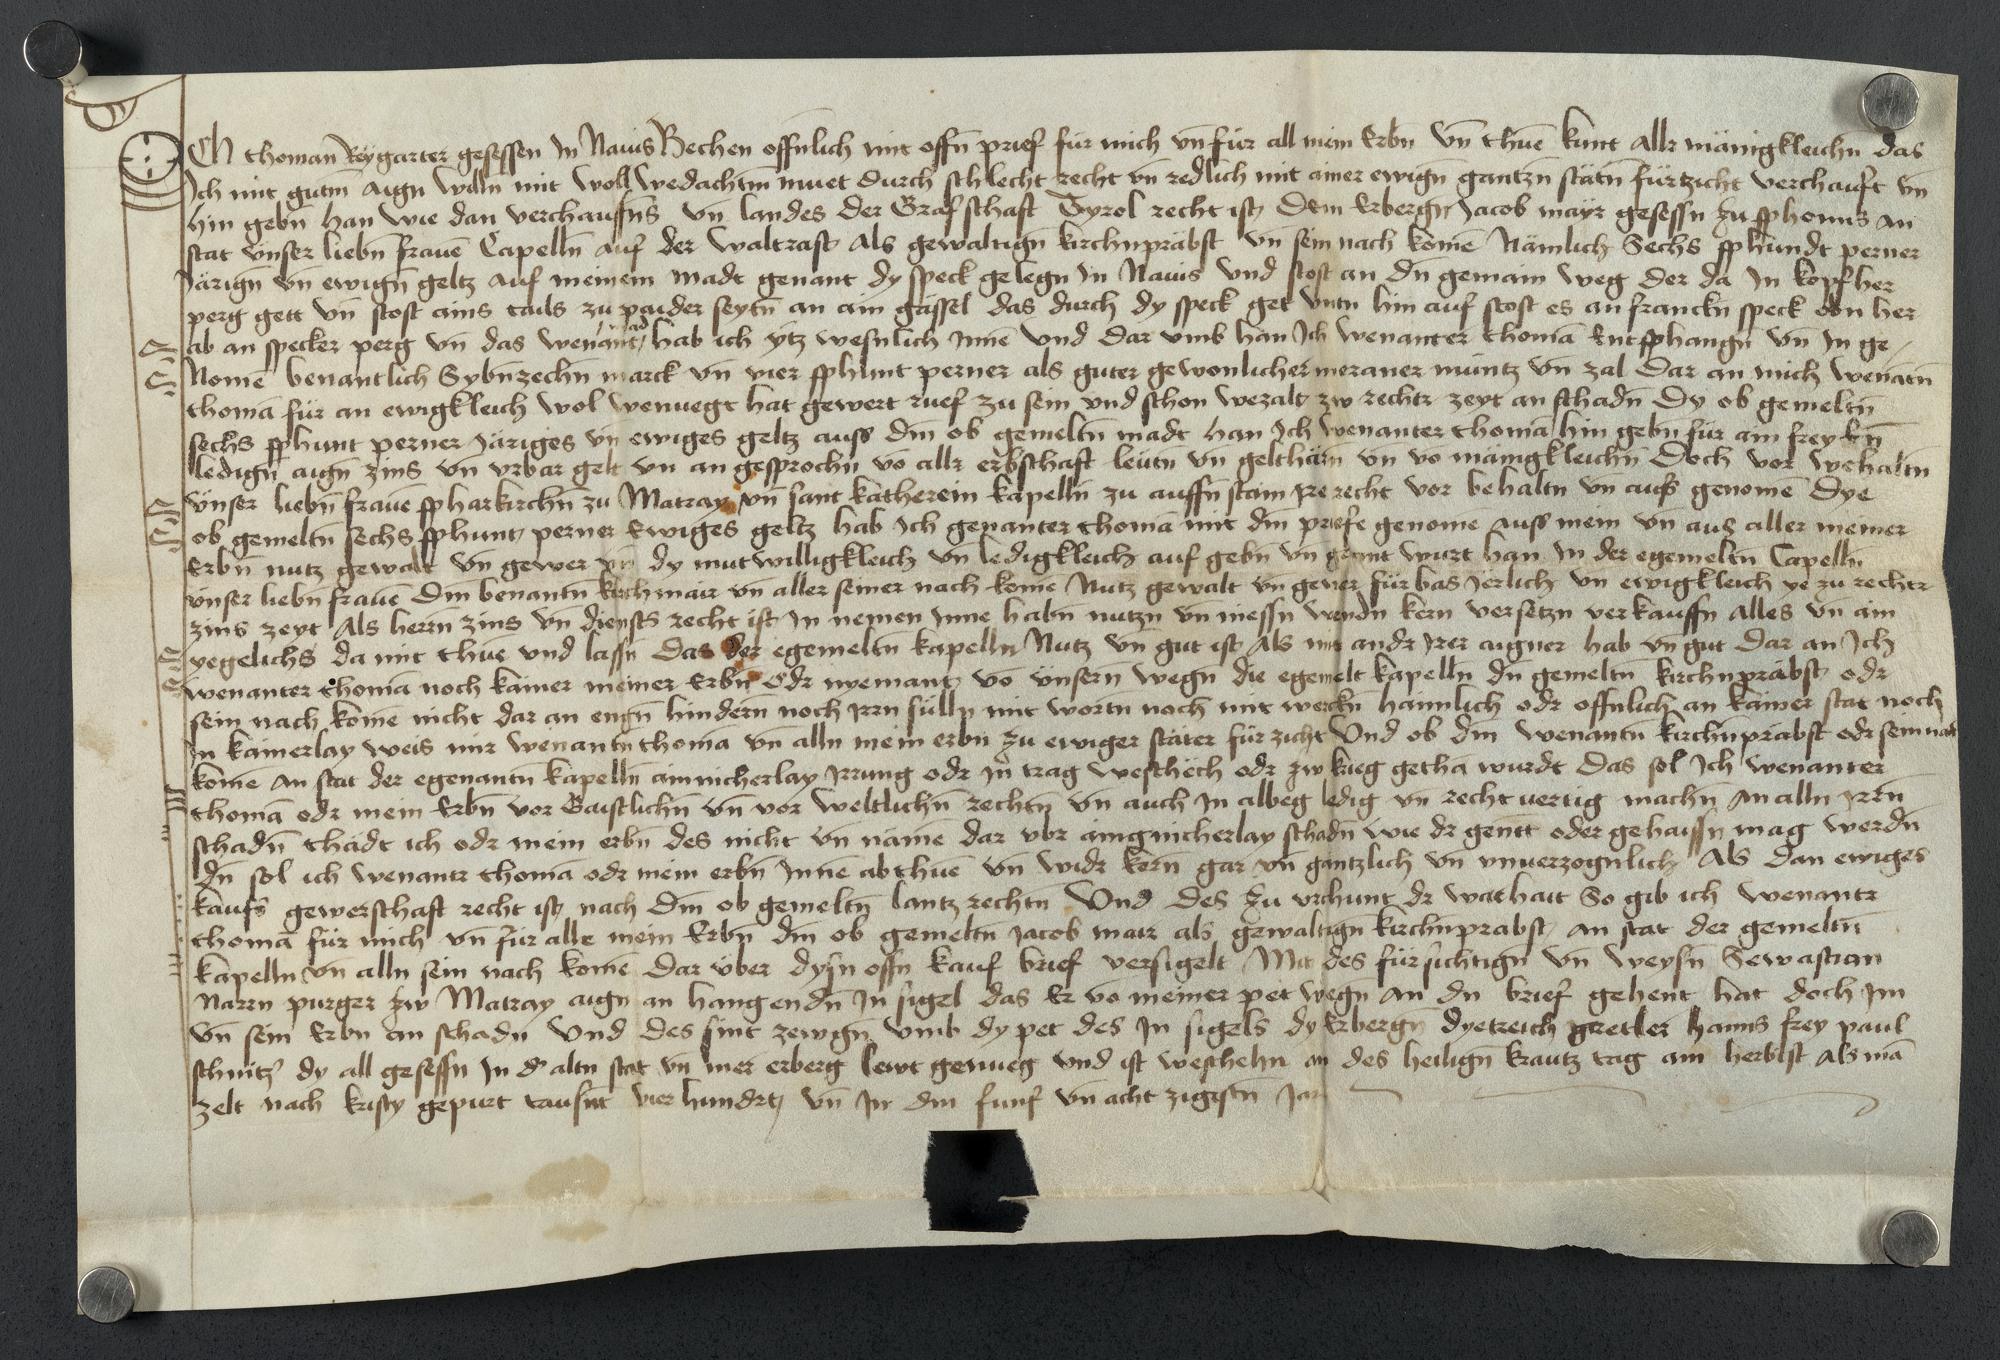 Ich thoman Reygarter gesessen In Nauis Bechen offnlich mit offn prief für mich vn für all mein Erbn vn thue kunt Allr mänigkleichn das
Ich mit gutm aign willn mit woll wedachtm muet durch schlecht recht vn redlich mit ainer ewign gantzn stätn fürtzicht verchauft vn
hin gebn han wie dan verchaufns vn landes der Grafschaft Tyrol recht ist Dem Erbergn Jacob mayr gesessn zu pphonns An
stat vnser liebn fraue Capelln Auf der waltrast Als gewaltign kirchnpräbst vn sein nach kome Nämlich Sechs pphundt perner
Järign vn ewign geltz Auf meinem madt genant dy speck gelegn In Nauis vnd stost an dn gemain weg der da In kopfher
perg gett vn stost ains tails zu paider seytn an ain gässel das durch dy speck get vntn hin auf stost es an franckn speck obn her
ab an specker perg vn das wenant mad hab ich ytz wesnlich Inne vnd dar vmb han Ich wenanter thoma Entpphangn vn In ge
Nome benantlich Sybnzechn marck vn vier pphunt perner als guter gewonlicher meraner müntz vn zal Dar an mich wenatn
thoma für an ewigkleich wol wenuegt hat gewert ruef zu sein vnd schon wezalt zw rechtr zeyt an schadn Dy ob gemeltn
sechs pphunt perner Järiges vn ewiges geltz auss dm ob gemeltn madt han Ich wenanter thoma hin gebn für ain frey Ern
ledign aign zins vn vrbar gelt vn an gesprochn vo allr erbschaft leütn vn gelthärn vn vo mänigkleichn Doch vor wehaltn
vnser liebn fraue pfharkirchn zu Matray vn sant katherein kapelln zu auffn stain Ire recht vor behaltn vn aufs genome Dye
ob gemeltn sechs pphunt perner Ewiges geltz hab Ich genanter thoma mit dm priefe genome Auss mein vn aus aller meiner
Erbn nutz gewalt vn gewer vn dy mutwilligkleich vn ledigkleich auf gebn vn geant wurt han In der egemeltn Capelln
vnser liebn fraue Dm benantn kirchmair vn aller seiner nach kome Nutz gewalt vn gewer für bas Jerlich vn ewigkleich ye zu rechtr
zins zeyt Als herrn zins vn diensts recht ist In nemen Inne habn nutzn vn niessn wendn kern versetzn verkauffn Alles vn ain
yegelichs da mit thue vnd lassn Das der egemeltn kapelln Nutz vn gut ist Als mit andr Irer aigner hab vn gut Dar an Ich
wenanter thoma noch kainer meiner Erbn Odr nyemant vo vnsern wegn die egemelt kapelln dn gemeltn kirchnpräbst odr
sein nach kome nicht dar an engn hindern noch Irrn sülln mit wortn noch mit werckn hainlich odr offnlich an kainer stat noch
In kainerlay weis mir wenantn thoma vn alln mein erbn zu ewiger stäter für zicht Vnd ob dm wenantn kirchnpräbst odr sein nach
kome An stat der egenantn kapelln ainnicherlay Irrung odr In trag weschech odr zw krieg getha wurdt Das sol Ich wenanter
thoma odr mein Erbn vor Gaistlichn vn vor weltlichn rechtn vn auch In albeg ledig vn recht vertig machn An alln Irrn
schadn thädt ich odr mein erbn des nicht vn näme dar vbr aingnicherlay schadn wie dr gentt oder gehaissn mag werdn
dn sol ich wenantr thoma odr mein erbn Inne ab thue vn widr kern gar vn gantzlich vn vnuerzognlich Als dan ewiges
kaufs gewerschaft recht ist nach dm ob gemeltn lantz rechtn Vnd Des zu vrchunt dr warhait So gib ich wenantr
thoma für mich vn für alle mein Erbn dm ob gemeltn Jacob mair als gewaltign kirchnprabst An stat der gemeltn
kapelln vn alln sein nach kome Dar über dysn offn kauf brief versigelt Mit des fürsichtign vn weysn Sewastian
Narrn purger zw Matray aign an hangendn In sigel das Er vo meiner pet wegn An dn brief gehent hat doch Im
vn sein Erbn an schadn Vnd Des sint zewgn vmb dy pet des In sigels dy Erbergn dyetreich greiler hanns frey paul
schnitz' dy all gesessn In dr altn stat vn mer erberg lewt genueg vnd ist weschehn an des heilign krautz tag am herbst Als ma
zelt nach kristy gepurt tausnt vier hundrt vn In dm funf vn acht zigistn Jar